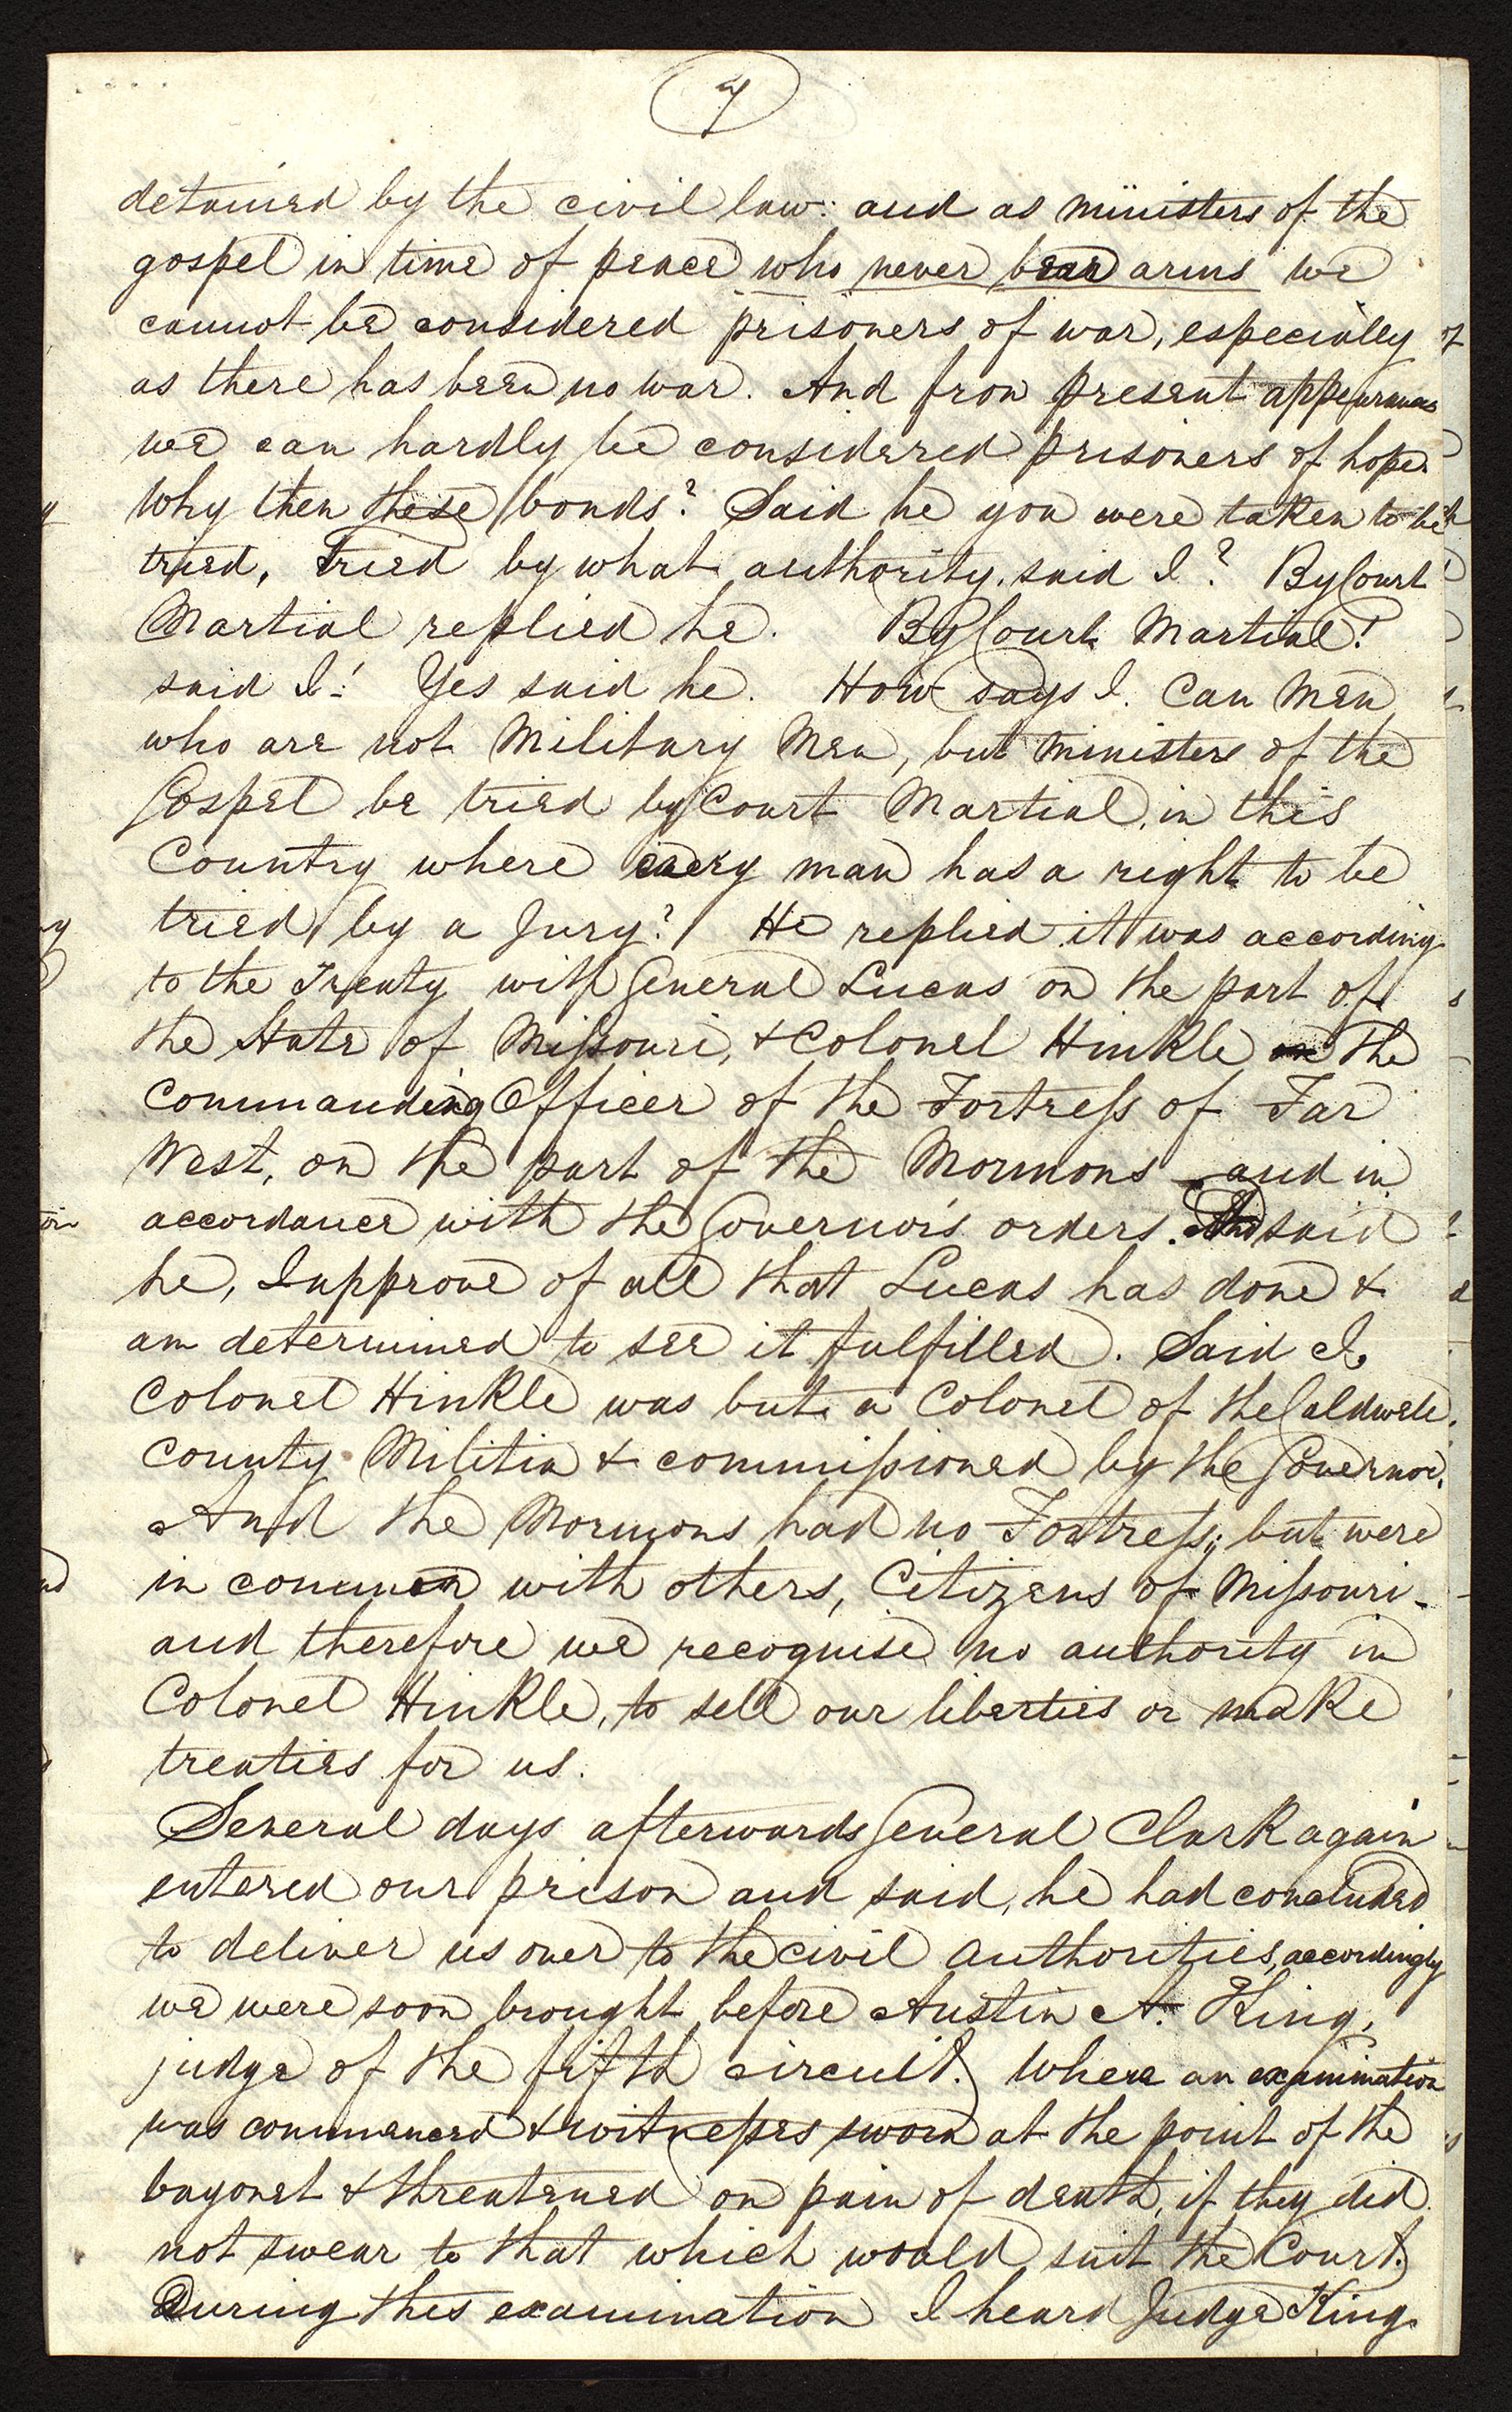 7
detained by the civil law: and as ministers of the
gospel in time of peace who never bear arms we
cannot be considered prisoners of war, especially
as there has been no war. And from present appearances
we can hardly be considered prisoners of hope.
Why then these bonds? Said he you were taken to be
tried, tried by what authority, said I? By Court
Martial replied he. By Court Martial!
said I! Yes said he. How says I. Can Men
who are not Military Men, but ministers of the
Gospel be tried by Court Martial, in this
Country where every man has a right to be
tried by a Jury? He replied it was according
to the Treaty with General Lucas on the part of
the State of Missouri, & Colonel Hinkle the
Commanding Officer of the Fortress of Far
West, on the part of the Mormons and in
accordance with the Governor's orders. And said
he, I approve of all that Lucas has done &
am determined to see it fulfilled. Said I,
Colonel Hinkle was but a Colonel of the Caldwell
County Militia & commissioned by the Governor,
And the Mormons had no Fortress; but were
in common with others, Citizens of Missouri -
and therefore we recognise no authority in
Colonel Hinkle, to sell our liberties or make
treaties for us.
Several days afterwards General Clark again
entered our prison and said, he had concluded
to deliver us over to the civil authorities, accordingly
we were soon brought before Austin A. King,
judge of the fifth circuit. Where an examination
was commenced & witnesses sworn at the point of the
bayonet & threatened on pain of death, if they did
not swear to that which would suit the Court.
During this examination I heard Judge King